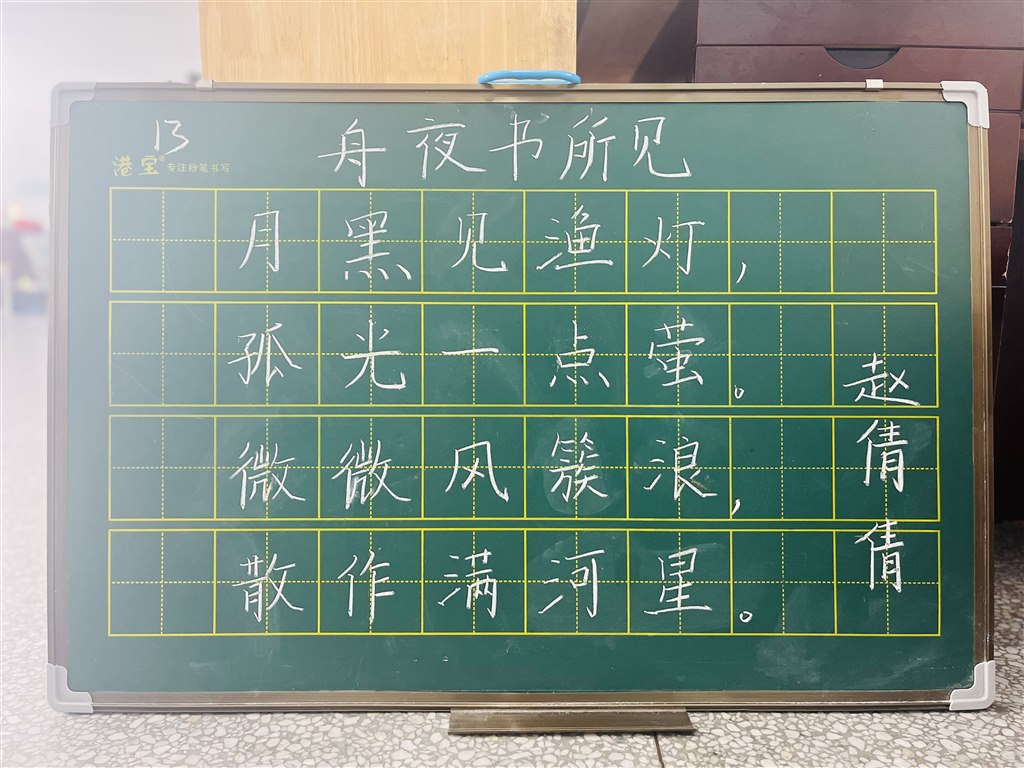 13
舟夜书所见
港宝® 专注粉笔书写
月黑见渔灯，
孤光一点萤。
微微风簇浪，
散作满河星。
赵倩倩